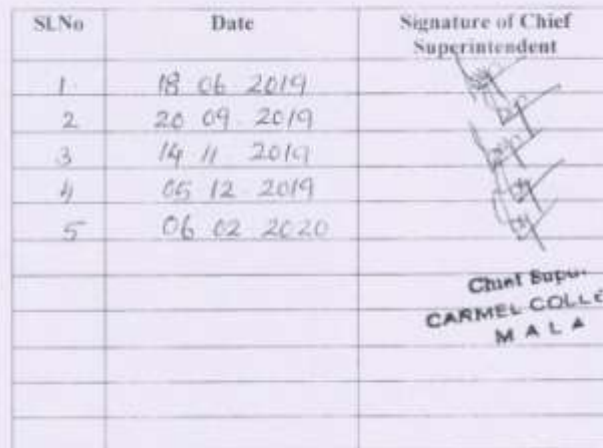 Sl.No Date Signature of Chief
Superintendent
1 18 06 2019
2 20 09 2019
3 14 11 2019
4 05 12 2019
5 06 02 2020
Chief
CARMEL
MALA